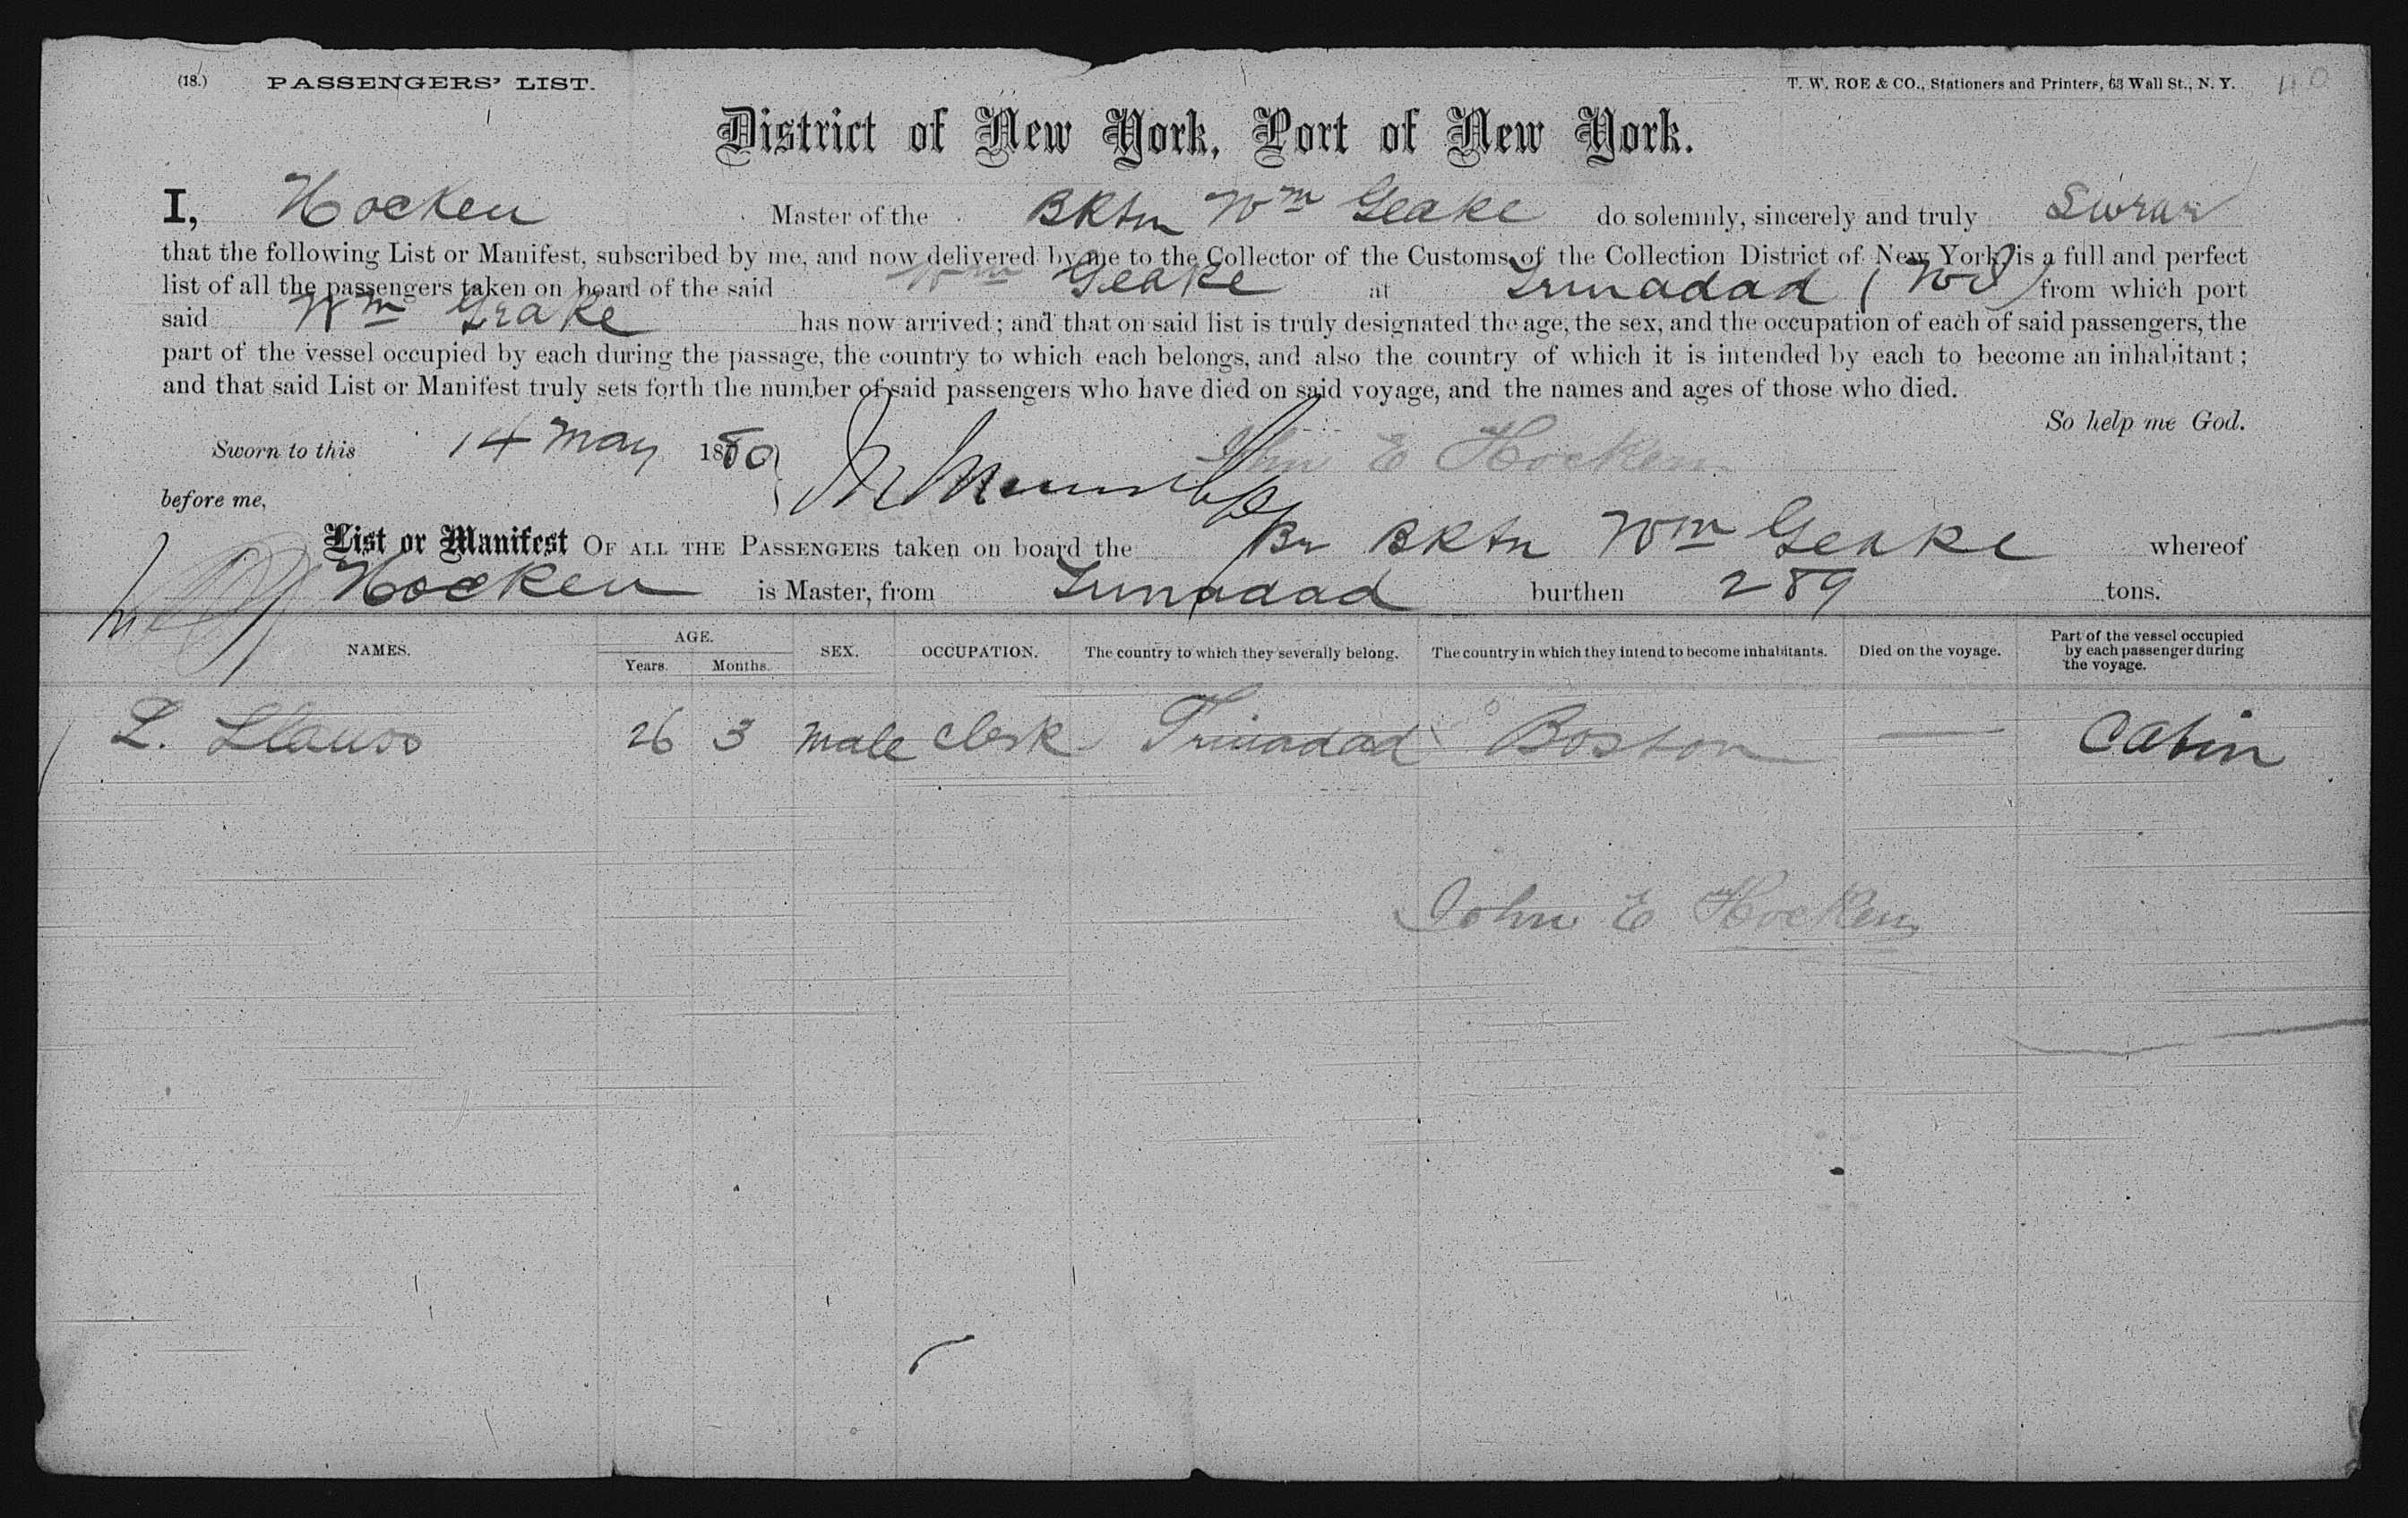 (18.) PASSENGERS' LIST. T. W. ROE & CO., Stationers and Printers, 63 Wall St., N. Y.
District of New York, Port of New York.
I, Hocken Master of the BKtn Wm Geake do solemnly, sincerely and truly Swear
that the following List or Manifest, subscribed by me, and now delivered by me to the Collector of the Customs of the Collection District of New York, is a full and perfect
list of all the passengers taken on board of the said Wm Geake at Trinadad (WI) from which port
said Wm Geake has now arrived; and that on said list is truly designated the age, the sex, and the occupation of each of said passengers, the
part of the vessel occupied by each during the passage, the country to which each belongs, and also the country of which it is intended by each to become an inhabitant;
and that said List or Manifest truly sets forth the number of said passengers who have died on said voyage, and the names and ages of those who died.
So help me God.
Sworn to this 14 May 1880 John E Hocken
before me,
List or Manifest OF ALL THE PASSENGERS taken on board the Br BKtn Wm Geake whereof
Hocken is Master, from Trinadad burthen 289 tons.
NAMES. AGE. Years. Months. SEX. OCCUPATION. The country to which they severally belong. The country in which they intend to become inhabitants. Died on the voyage. Part of the vessel occupied by each passenger during the voyage.
L. 26 3 Male Clerk Trinadad Boston — Cabin
John E Hocken